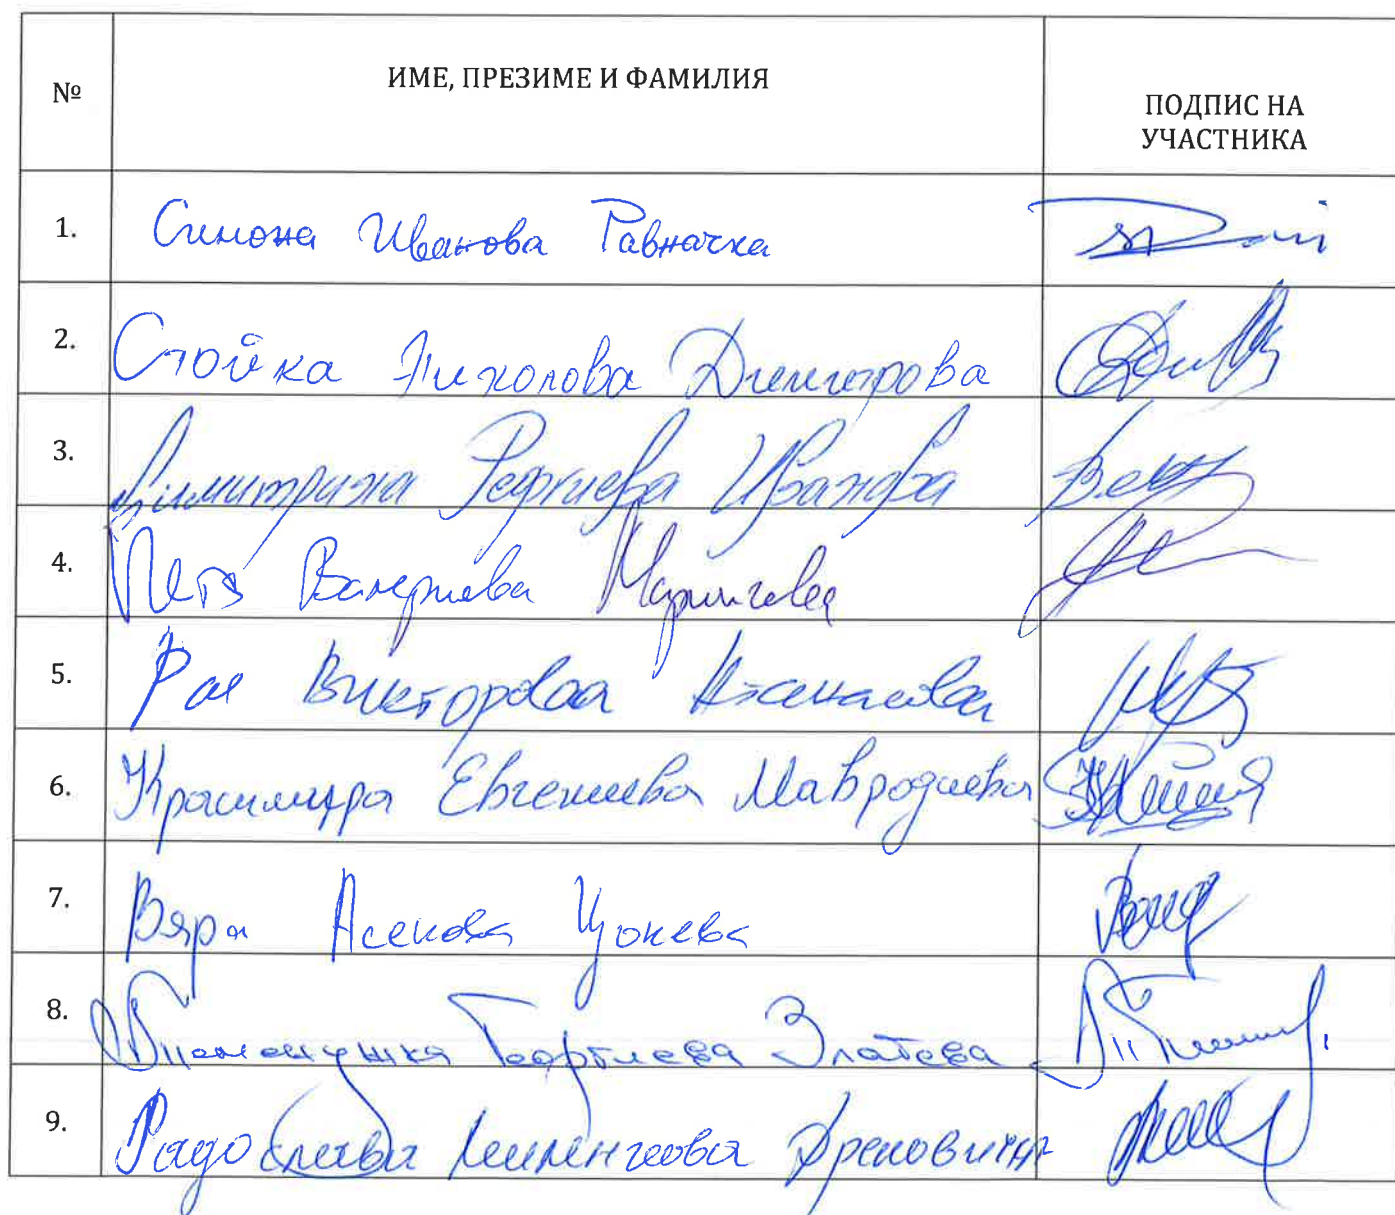 № ИМЕ, ПРЕЗИМЕ И ФАМИЛИЯ ПОДПИС НА
УЧАСТНИКА
1. Симона Иванова Равначка
2. Стойка Николова Димитрова
3. Димитрина Иванова
4. Петя Валериева
5. Рая Викторова Атанасова
6. Красимира Евгениева Мавродиева
7. Вяра Асенова Цонева
8. Георгиева Златева
9. Радослава